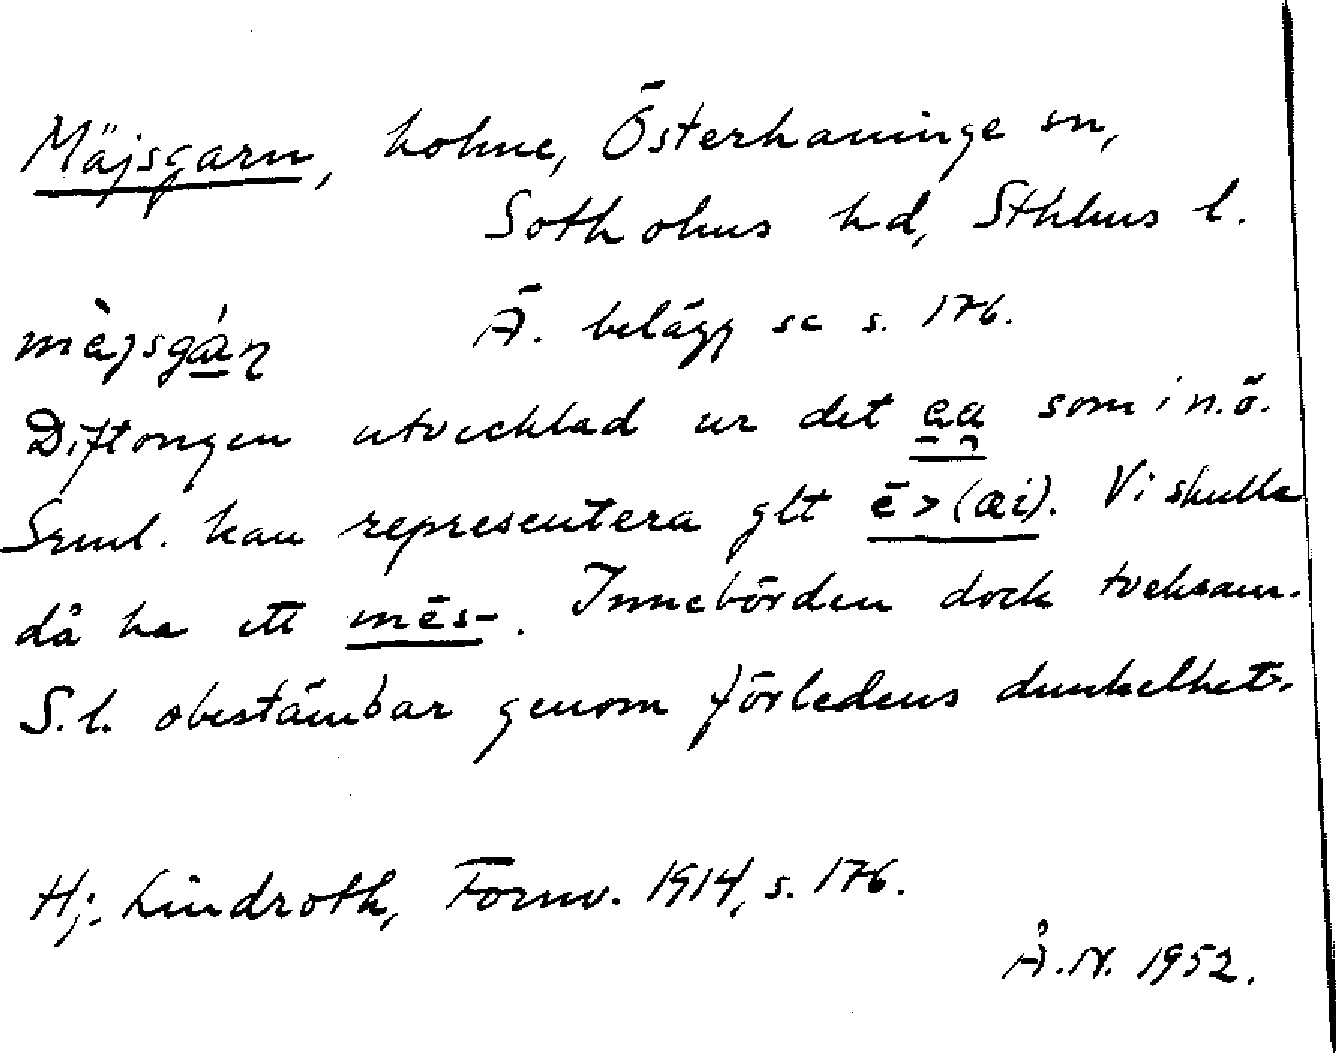 Mäjsgarn, holme, Österhaninge sn,
Sotholms hd, Sthlms l.
mäjsgáɳ Ä. belägg se s. 176.
Diftongen utvecklad ur det ea som i n.ö.
Srml. kan representera glt ē > (æi). Vi skulle
då ha ett mēs-. Innebörden dock tveksam.
S.l. obestämbar genom förledens dunkelhet.
Hj. Lindroth, Fornv. 1914, s. 176.
Å.N. 1952.